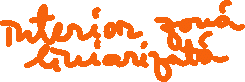 interior zonă
liniarizată